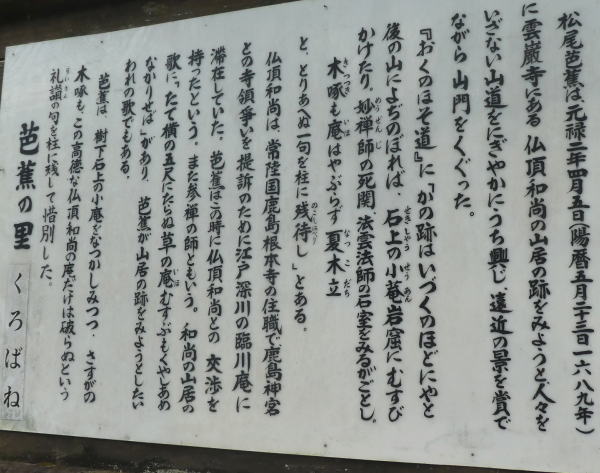 松尾芭蕉は、元禄二年四月五日(陽暦五月二十三日一六八九年)
に雲巌寺にある仏頂和尚の山居の跡をみようと、人々を
いざない山道をにぎやかにうち興じ、遠近の景を賞で
ながら山門をくぐった。
『おくのほそ道』に「かの跡はいづくのほどにやと
後の山によぢのぼれば、石上の小菴岩窟にむすび
かけたり。妙禅師の死関、法雲法師の石室をみるがごとし。
木啄も庵はやぶらず夏木立
と、とりあへぬ一句を柱に残待し」とある。
仏頂和尚は、常陸国鹿島根本寺の住職で、鹿島神宮
との寺領争いを提訴のために江戸深川の臨川庵に
滞在していた。芭蕉はこの時に仏頂和尚との交渉を
持ったという。また参禅の師ともいう。和尚の山居の
歌に、「たて横の五尺にたらぬ草の庵むすぶもくやしあめ
なかりせば」があり、芭蕉が山居の跡をみようとしたい
われの歌でもある。
芭蕉は、樹下石上の小庵をなつかしみつつ、さすがの
木啄も、この高徳な仏頂和尚の庵だけは破らぬという
礼讃の句を柱に残して惜別した。
芭蕉の里 くろばね